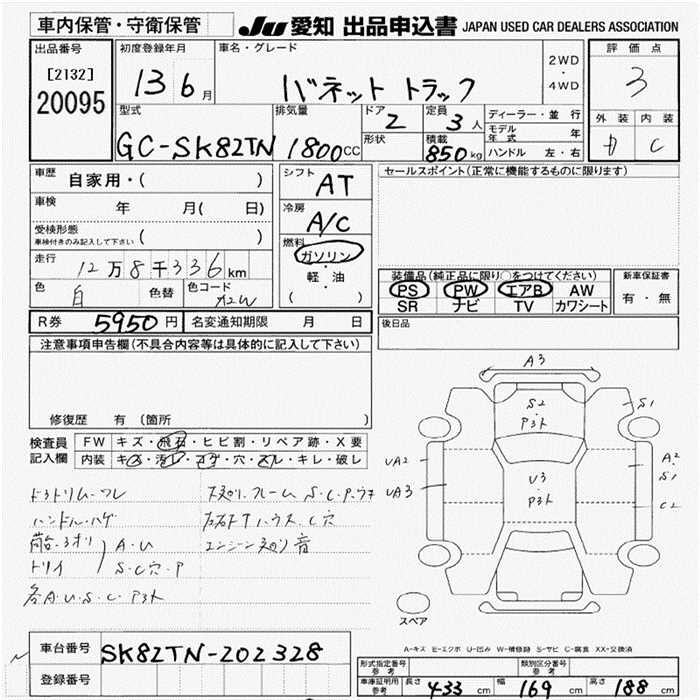 車内保管・守衛保管
JU 愛知 出品申込書 JAPAN USED CAR DEALERS ASSOCIATION
出品番号
[2132]
20095
初度登録年月
13 6 月
車名・グレード
バネット トラック
2WD
・
4WD
評価点
3
外装 内装
D C
型式
GC-SK82TN
排気量
1800 CC
ドア
2
形状
定員
3 人
積載
850 kg
ディーラー・並行
モデル年式 年
ハンドル 左・右
車歴 自家用・( )
車検 年 月( 日)
受検形態
車検付きのみ記入して下さい ( )
走行 12 万 8 千 336 km
色 白 色替 色コード A2W
シフト AT
冷房 A/C
燃料
ガソリン
・
軽・油
( )
セールスポイント(正常に機能するものに限ります)
装備品(純正品に限り○をつけてください)
PS PW エアB AW
SR ナビ TV カワシート
新車保証書
有・無
R券 5950 円 名変通知期限 月 日
後日品
注意事項申告欄(不具合内容等は具体的に記入して下さい)
修復歴 有 (箇所 )
検査員 FW キズ・飛石・ヒビ割・リペア跡・X要
記入欄 内装 キズ・汚レ・コゲ・穴・スレ・キレ・破レ
ハンドル・ハゲ
A・U
S・C穴・P
エンジン
A3
S2
P3ト
S1
UA2
UA3
U3
P3ト
A2
S1
C2
スペア
A-キズ E-エクボ U-凹み W-補修跡 S-サビ C-腐食 XX-交換済
車台番号 SK82TN-202328
登録番号
形式指定番号
参考
類別区分番号
参考
車庫証明用
参考
長さ 433 cm 幅 169 cm 高さ 188 cm